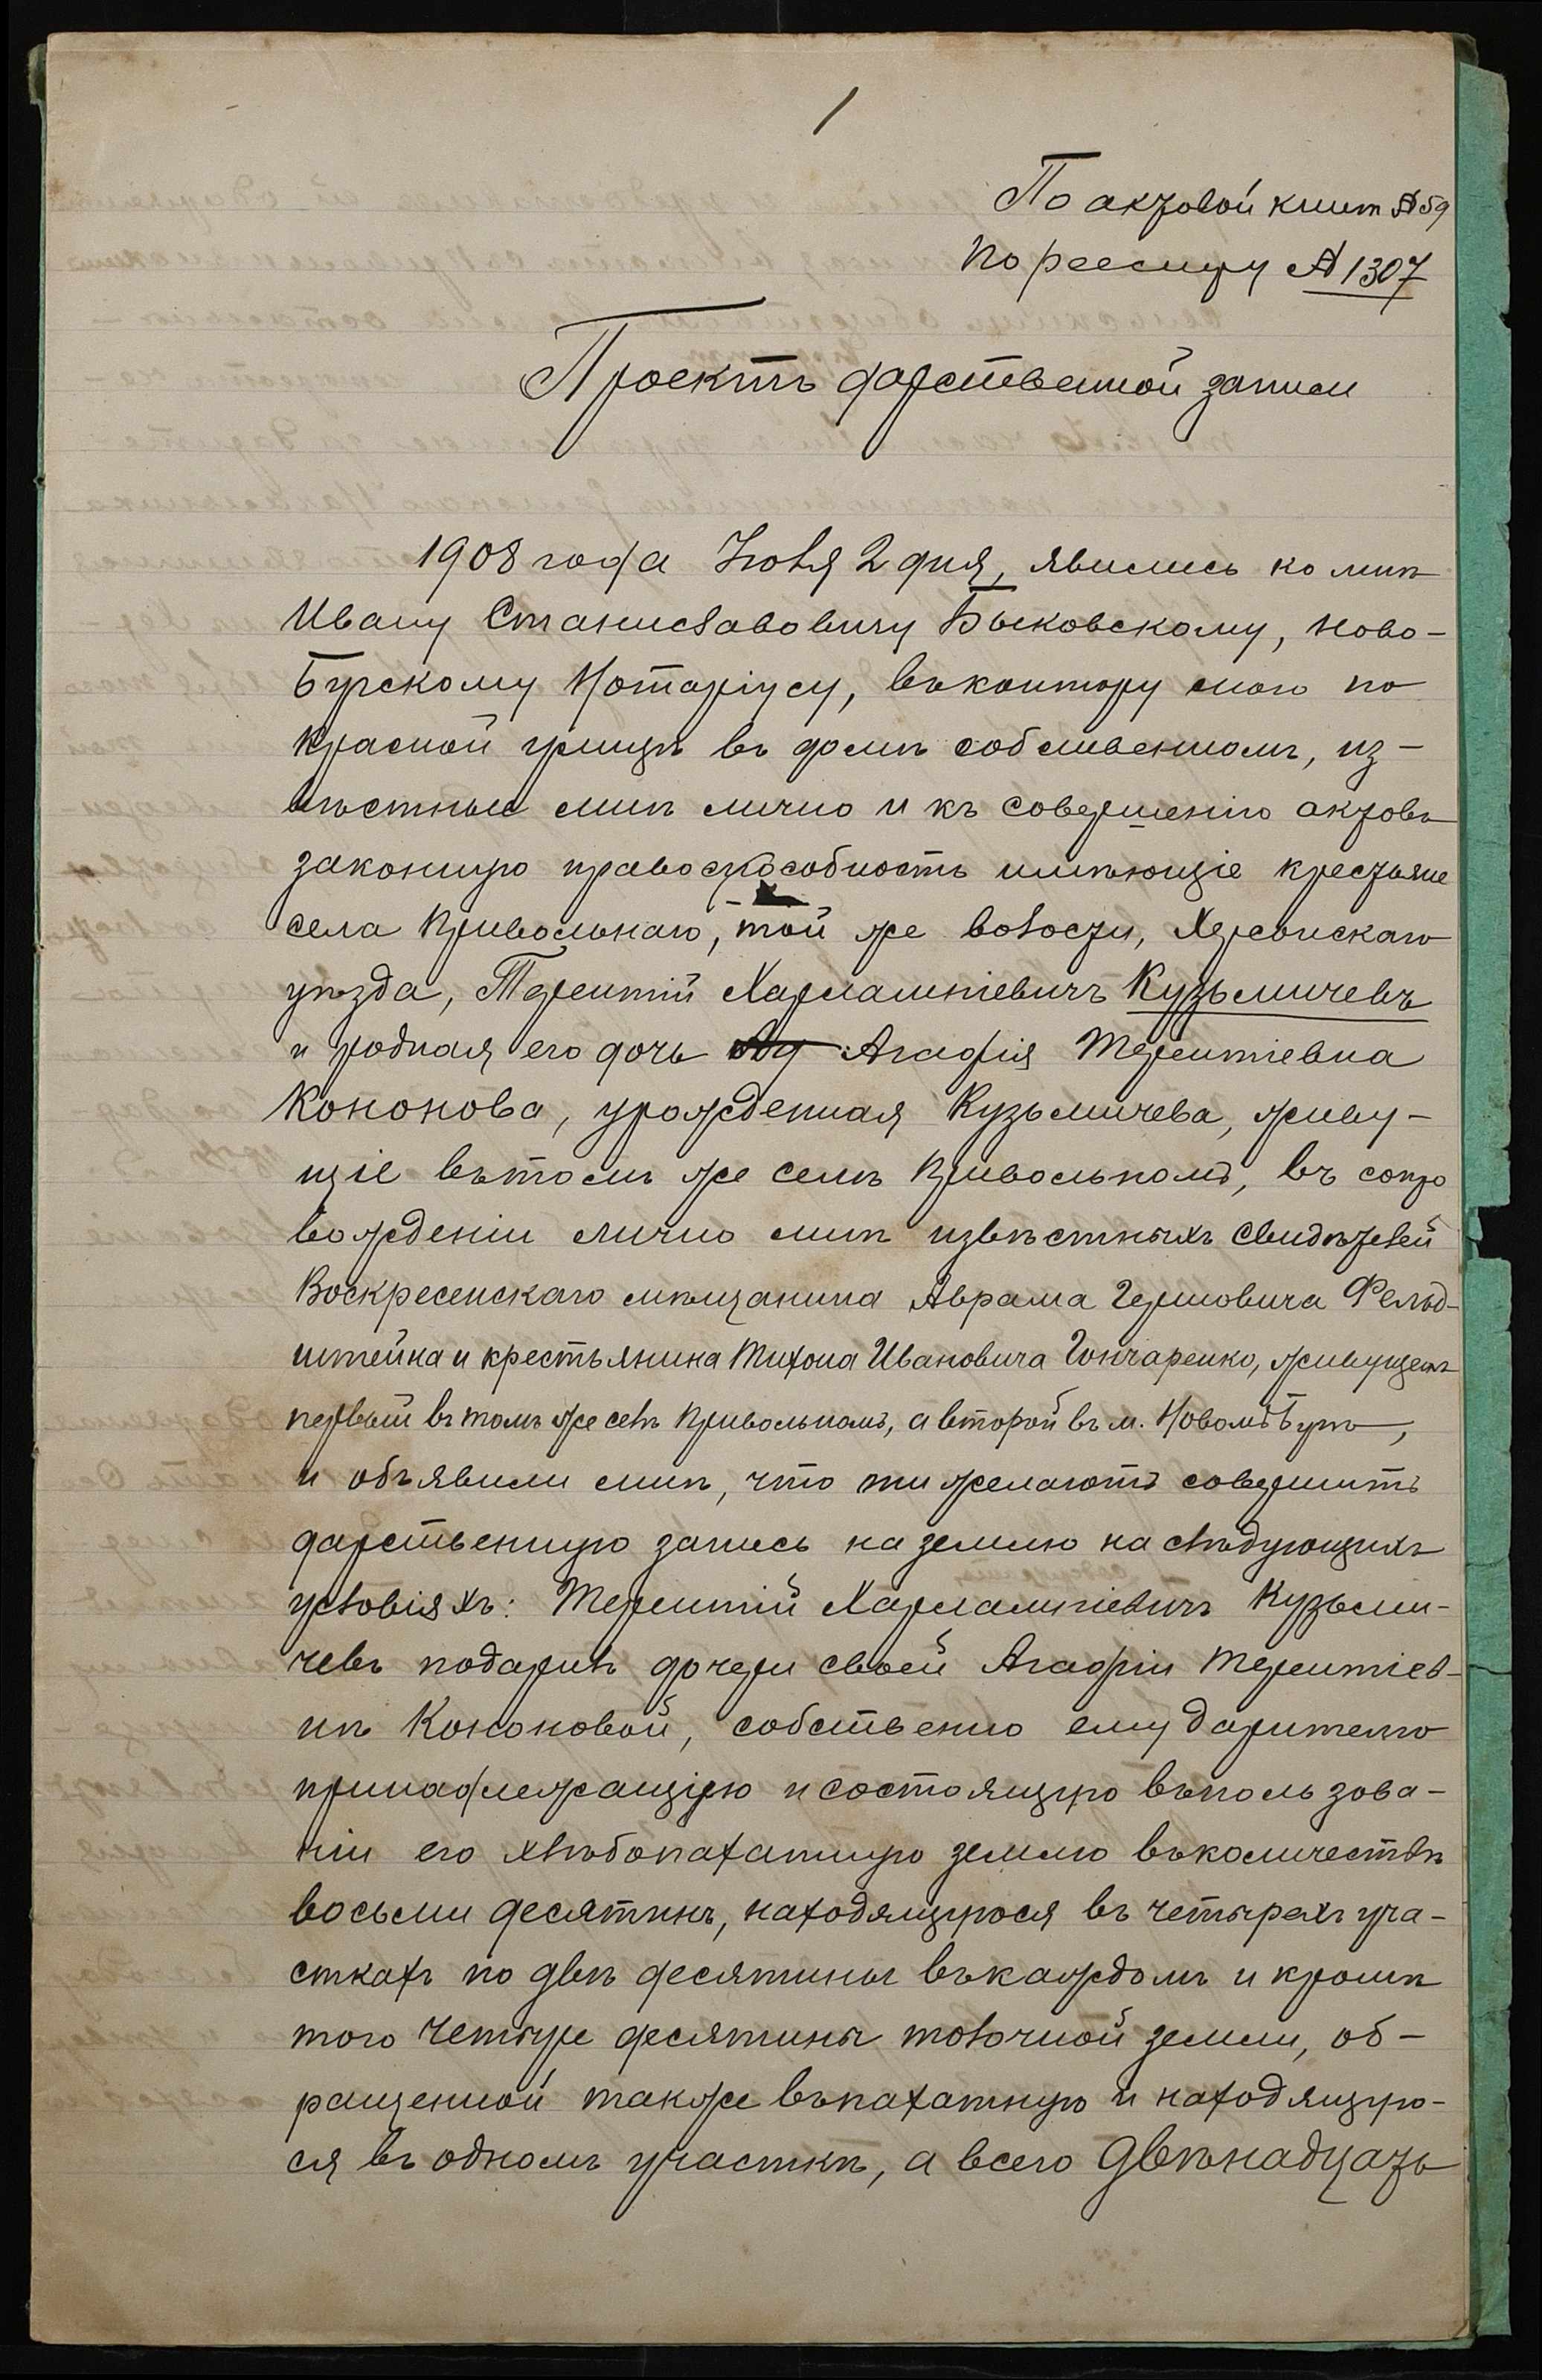 1
По актовой книгѣ № 59
По реестру № 1307
Проектъ дарственной записи
1908 года Іюля 2 дня, явились ко мнѣ
Ивану Станиславовичу Быковскому, Ново-
Бугскому Нотаріусу, въ контору мою по
Красной улицѣ въ домѣ собственномъ, из-
вѣстные мнѣ лично и къ совершенію актовъ
законную правоспособность имѣющіе крестьяне
села Привольнаго, той же волости, Херсонскаго
уѣзда, Терентій Харлампіевичъ Кузьмичевъ
и родная его дочь Агафія Терентіевна
Кононова, урожденная Кузьмичева, живу-
щіе въ томъ же селѣ Привольномъ, въ сопро
вожденіи лично мнѣ извѣстныхъ свидѣтелей
Воскресенскаго мѣщанина Аврама Гершовича Фельд-
штейна и крестьянина Тихона Ивановича Гончаренко, живущихъ
первый въ томъ же селѣ Привольномъ, а второй въ м. Новомъ Бугѣ,
и объявили мнѣ, что они желаютъ совершить
дарственную запись на землю на слѣдующихъ
условіяхъ: Терентій Харлампіевичъ Кузьми-
чевъ подарилъ дочери своей Агафіи Терентіев-
нѣ Кононовой, собственно ему дарителю
принадлежащую и состоящую въ пользова-
ніи его хлѣбопахатную землю въ количествѣ
восьми десятинъ, находящуюся въ четырехъ уча-
сткахъ по двѣ десятины въ каждомъ и кромѣ
того четыре десятины толочной земли, об-
ращенной также въ пахатную и находящую-
ся въ одномъ участкѣ, а всего двѣнадцать